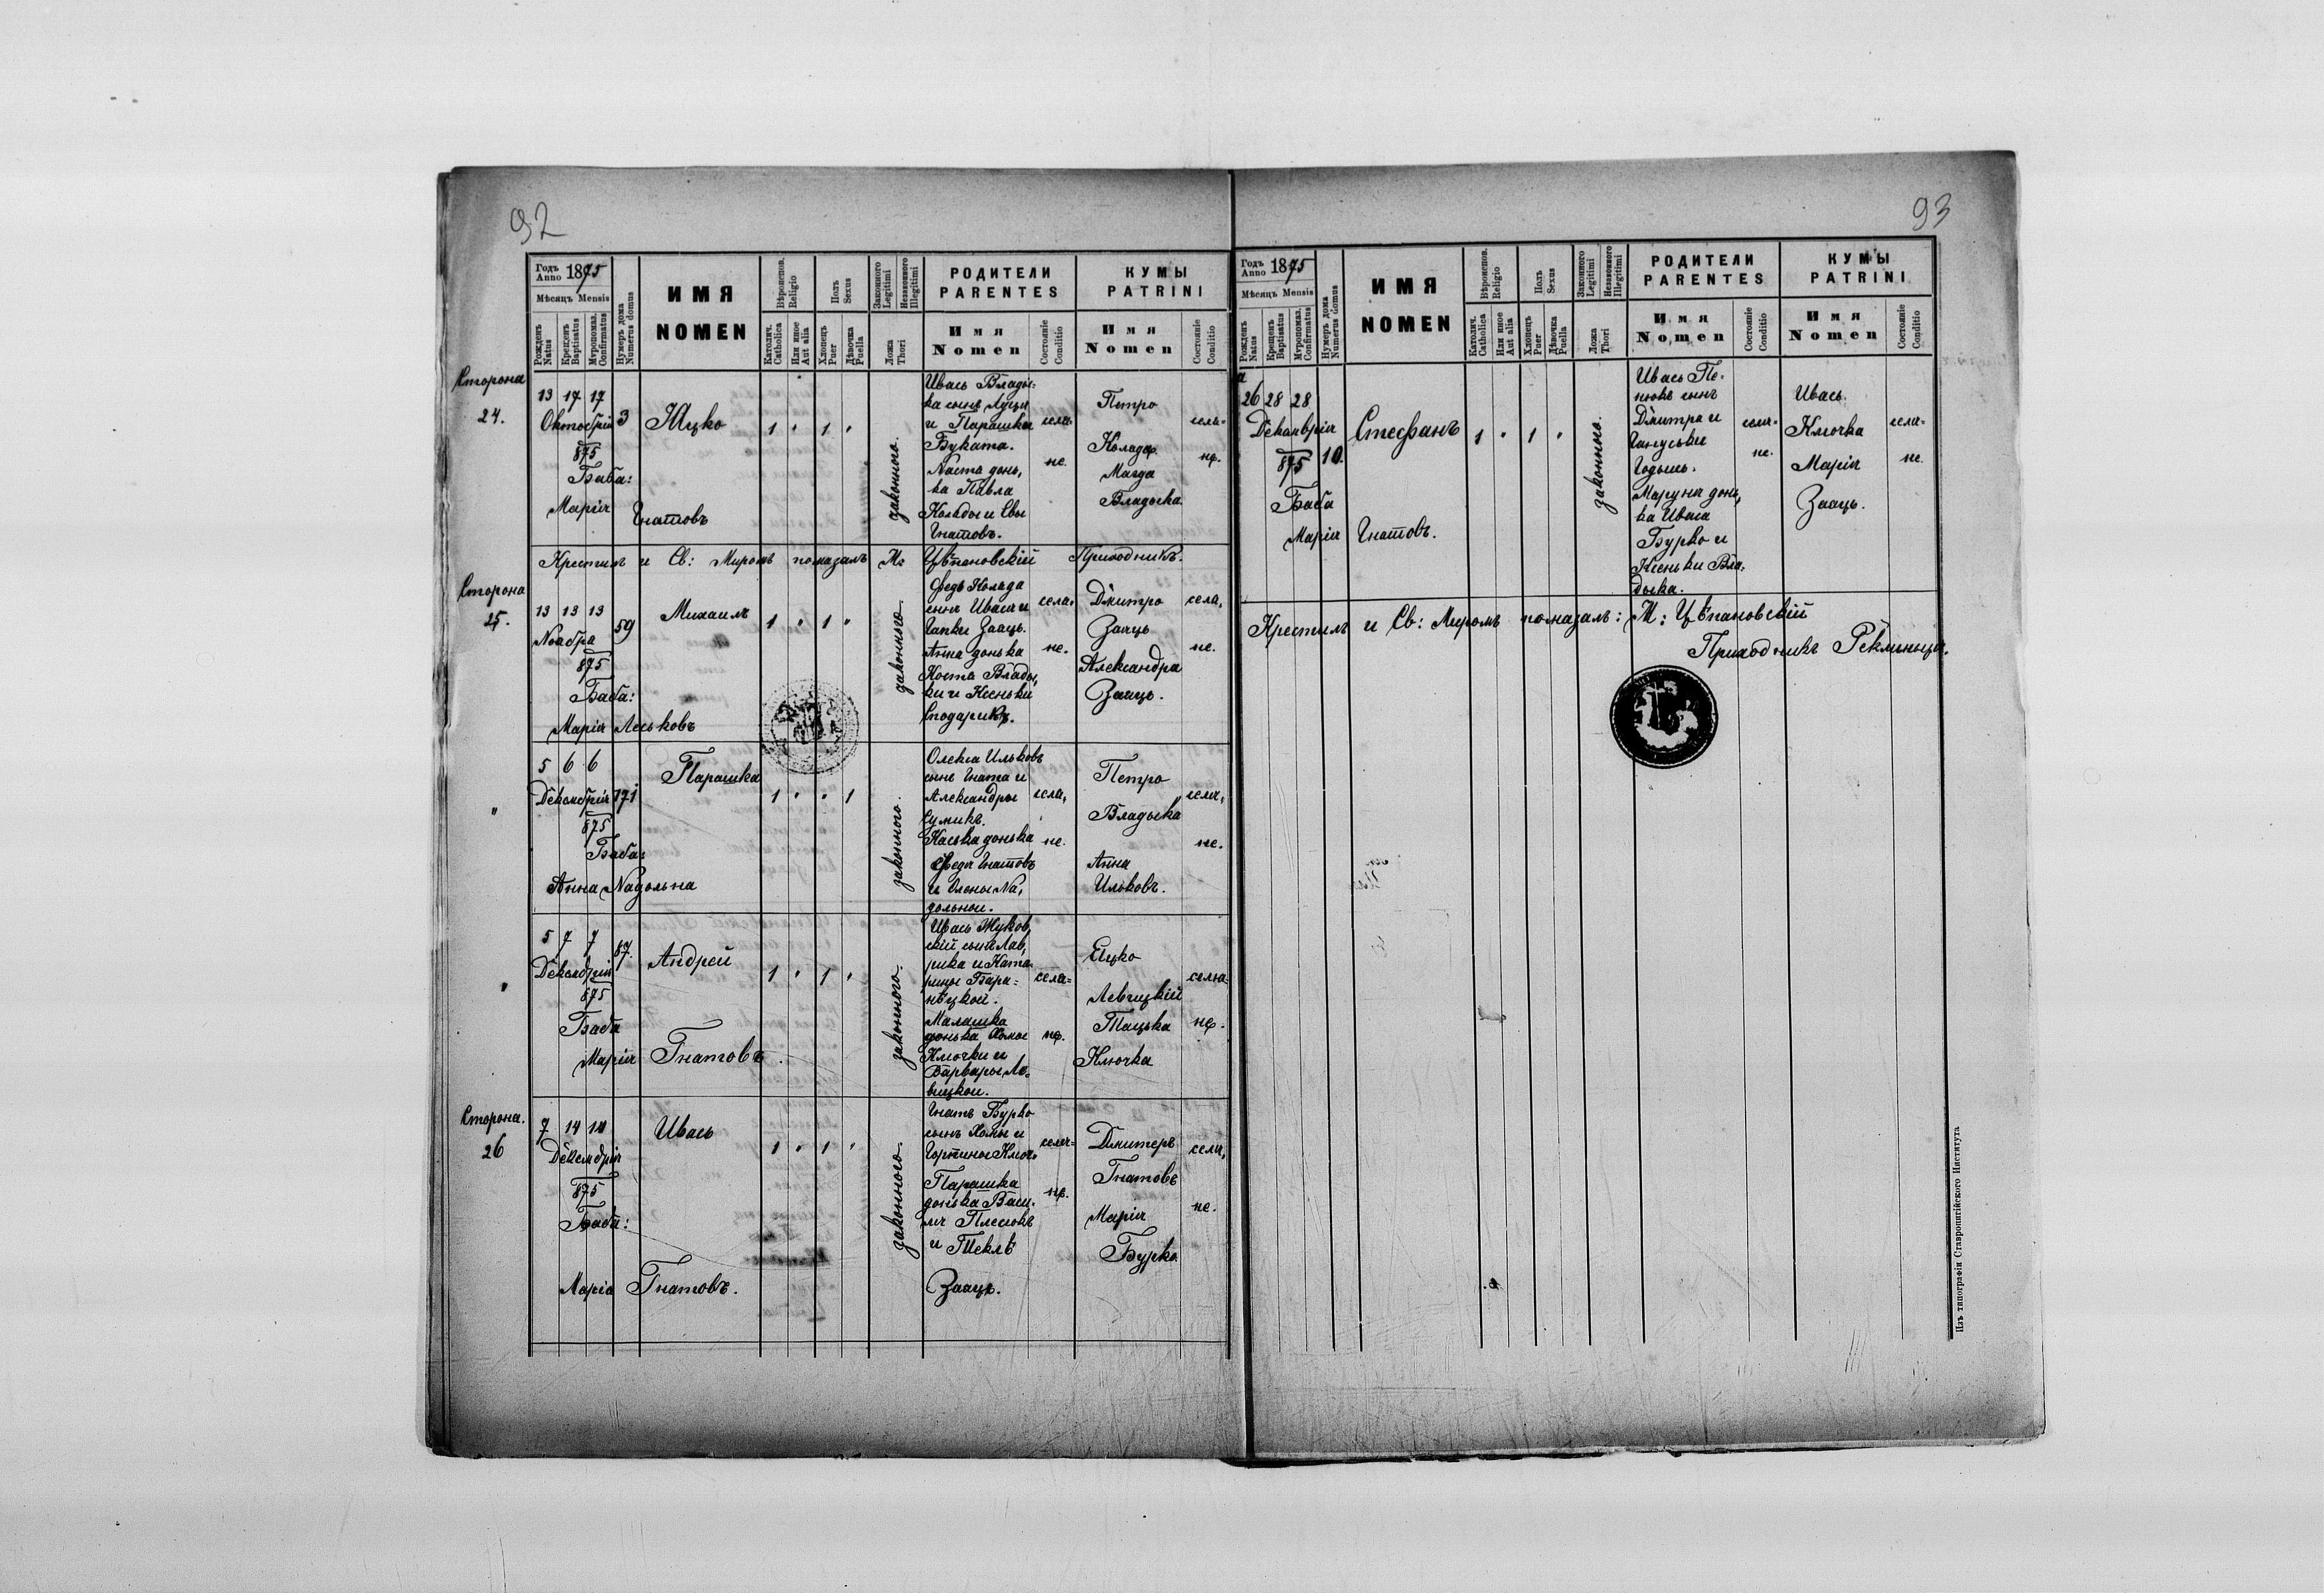 92
Годъ Anno 1875
Мѣсяцъ Mensis
Рожденъ Natus
Крещенъ Baptisatus
Мѵропомаз. Confirmatus
Нумеръ дома Numerus domus
ИМЯ
NOMEN
Вѣроисповѣд. Religio
Католич. Catholica
Или иное Aut alia
Полъ Sexus
Хлопецъ Puer
Дѣвочка Puella
Законного Legitimi
Незаконного Illegitimi
Ложа Thori
РОДИТЕЛИ
PARENTES
Имя Nomen
Состояніе Conditio
КУМЫ
PATRINI
Имя Nomen
Состояніе Conditio
Сторона
24.
13 17 17
Октобрія 3
875
Баба:
Марія Гнатовъ
Яцко
1 " 1 "
законного.
Ивась Влады-
ка сынъ Луцы
и Парашки
Буката.
Наста донь,
ка Павла
Колады и Евы
Гнатовъ.
селя-
не.
Петро
Коляда
Магда
Владыка
селя-
не.
Крестилъ и Св: Миромъ помазалъ М: Цѣпановскій Приходникъ.
Сторона
25.
13 13 13
Ноабра 59
875
Баба:
Марія Леськовъ
Михаилъ
1 " 1 "
законного.
Федь Коляда
сынъ Ивася и
Гапки Заацъ.
Анна донька
Коста Влады,
ки и Ксеньки
Сподарикъ.
села,
не.
Дмитро
Заацъ
Александра
Заацъ.
села,
не.
"
5 6 6
Декембрія 171
875
Баба:
Анна Надольна
Парашка
1 " " 1
законного.
Олекса Ильковъ
сынъ Гната и
Александры
Сумикъ.
Каська донька
Федя Гнатовъ
и Олены На,
дольнои.
села,
не.
Петро
Владыка
Анна
Ильковъ.
селя,
не.
"
5 7 7
Декембрія 87.
875
Баба
Марія Гнатовъ
Андрей
1 " 1 "
законного.
Ивась Жуков,
скій сынъ Лав,
рика и Ката-
рины Бара-
нѣцкой.
Малашка
донька Хомы
Ключки и
Варвары Ле-
вицкои.
села-
не.
Яцко
Левицкій
Тацька
Ключка
селя-
не.
Сторона.
26
7 14 14
Декембрія
875
Баба:
Марія Гнатовъ.
Ивась
1 " 1 "
законного.
Гнатъ Бурко
сынъ Хомы и
Горпины Ключ.
Парашка
донька Васи-
ля Плесюкъ
и Теклѣ
Заацъ.
селя-
не.
Дмитеръ
Гнатовъ
Марія
Бурко
селя,
не.
93
Годъ Anno 1875
Мѣсяцъ Mensis
Рожденъ Natus
Крещенъ Baptisatus
Мѵропомаз. Confirmatus
Нумеръ дома Numerus domus
ИМЯ
NOMEN
Вѣроисповѣд. Religio
Католич. Catholica
Или иное Aut alia
Полъ Sexus
Хлопецъ Puer
Дѣвочка Puella
Законного Legitimi
Незаконного Illegitimi
Ложа Thori
РОДИТЕЛИ
PARENTES
Имя Nomen
Состояніе Conditio
КУМЫ
PATRINI
Имя Nomen
Состояніе Conditio
26 28 28
Деканврія 10.
875
Баба
Марія Гнатовъ.
Стефанъ
1 " 1 "
законного.
Ивась Пе-
нюкъ сынъ
Дмитра и
Гануськи
Маруня донь,
ка Иваса
Бурко и
Ксеньки Вла-
дыка.
селя-
не.
Ивась
Ключка
Марія
Заацъ.
села-
не.
Крестилъ и Св: Миромъ помазалъ: М: Цѣпановскій
Приходникъ Рекльнецы.
Изъ типографіи Ставропигійского Института